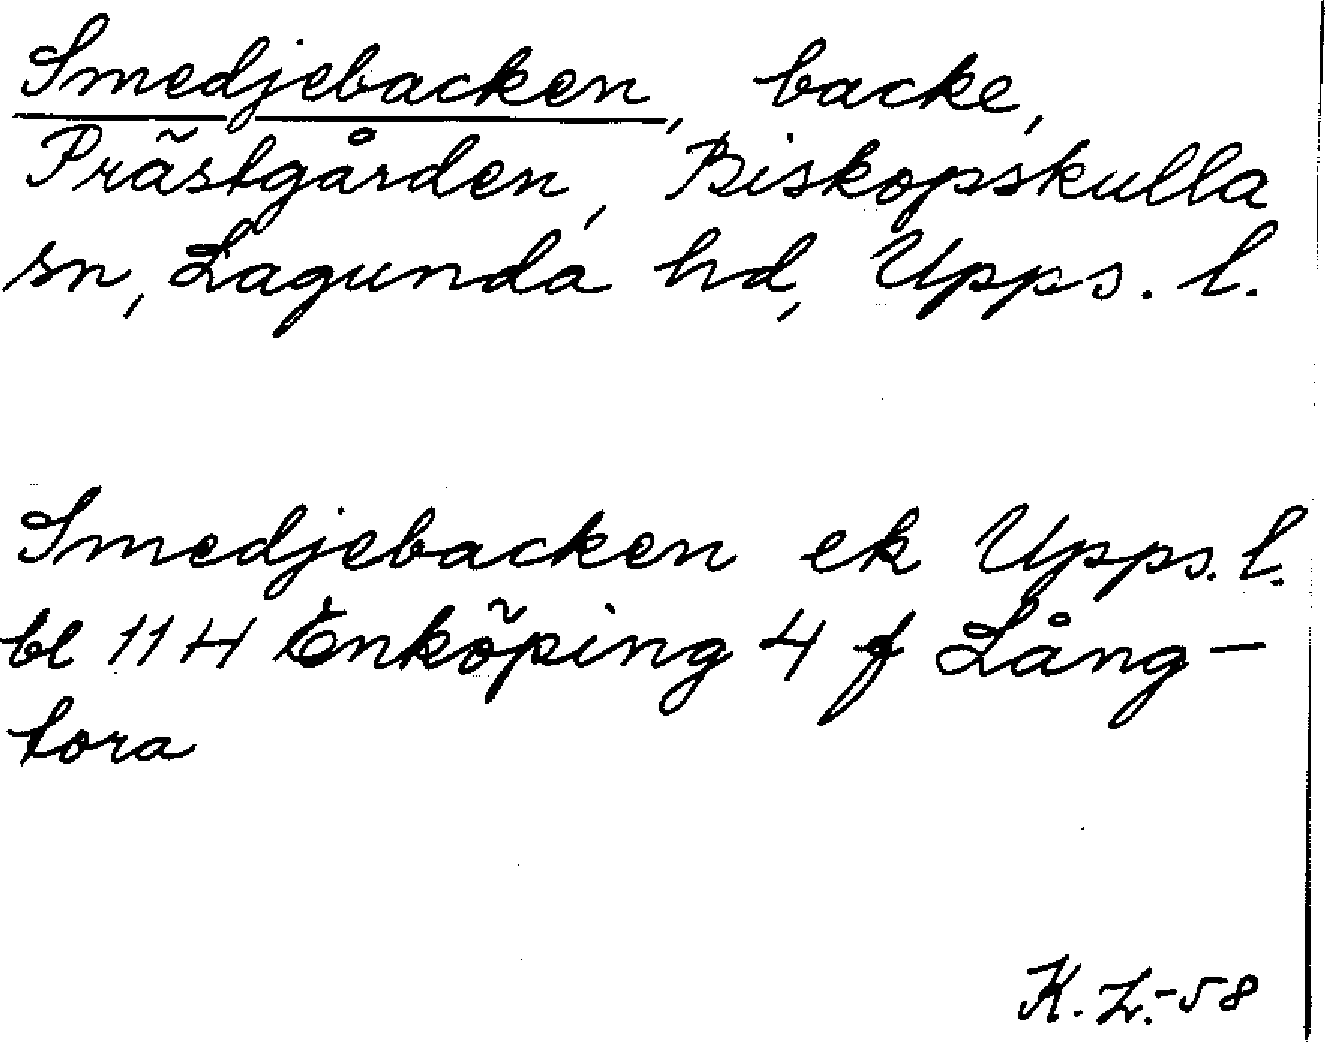 Smedjebacken, backe,
Prästgården, Biskopskulla
sn, Lagunda hd, Upps. l.
Smedjebacken ek Upps. l.
bl 11 H Enköping 4 f Lång-
tora
K. L.-58